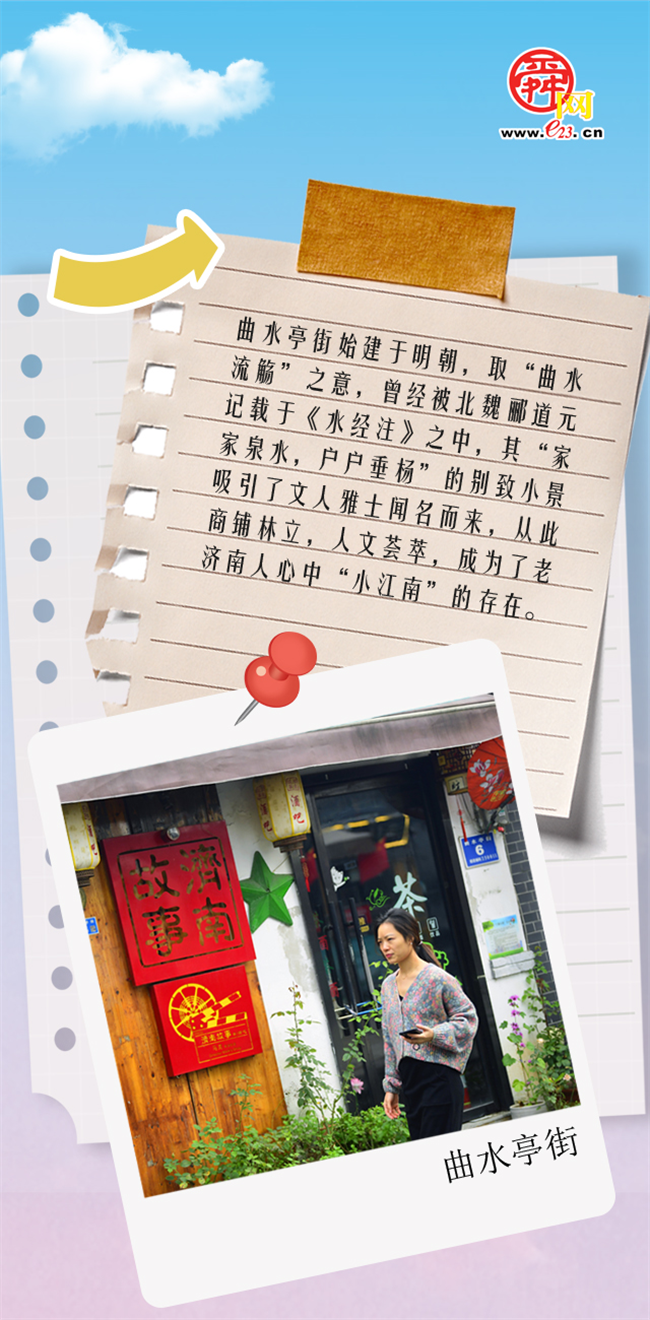 舜网
www.e23.cn
曲水亭街始建于明朝，取“曲水
流觞”之意，曾经被北魏郦道元
记载于《水经注》之中，其“家
家泉水，户户垂杨”的别致小景
吸引了文人雅士闻名而来，从此
商铺林立，人文荟萃，成为了老
济南人心中“小江南”的存在。
濟南
故事
茶
6
济南故事
曲水亭街